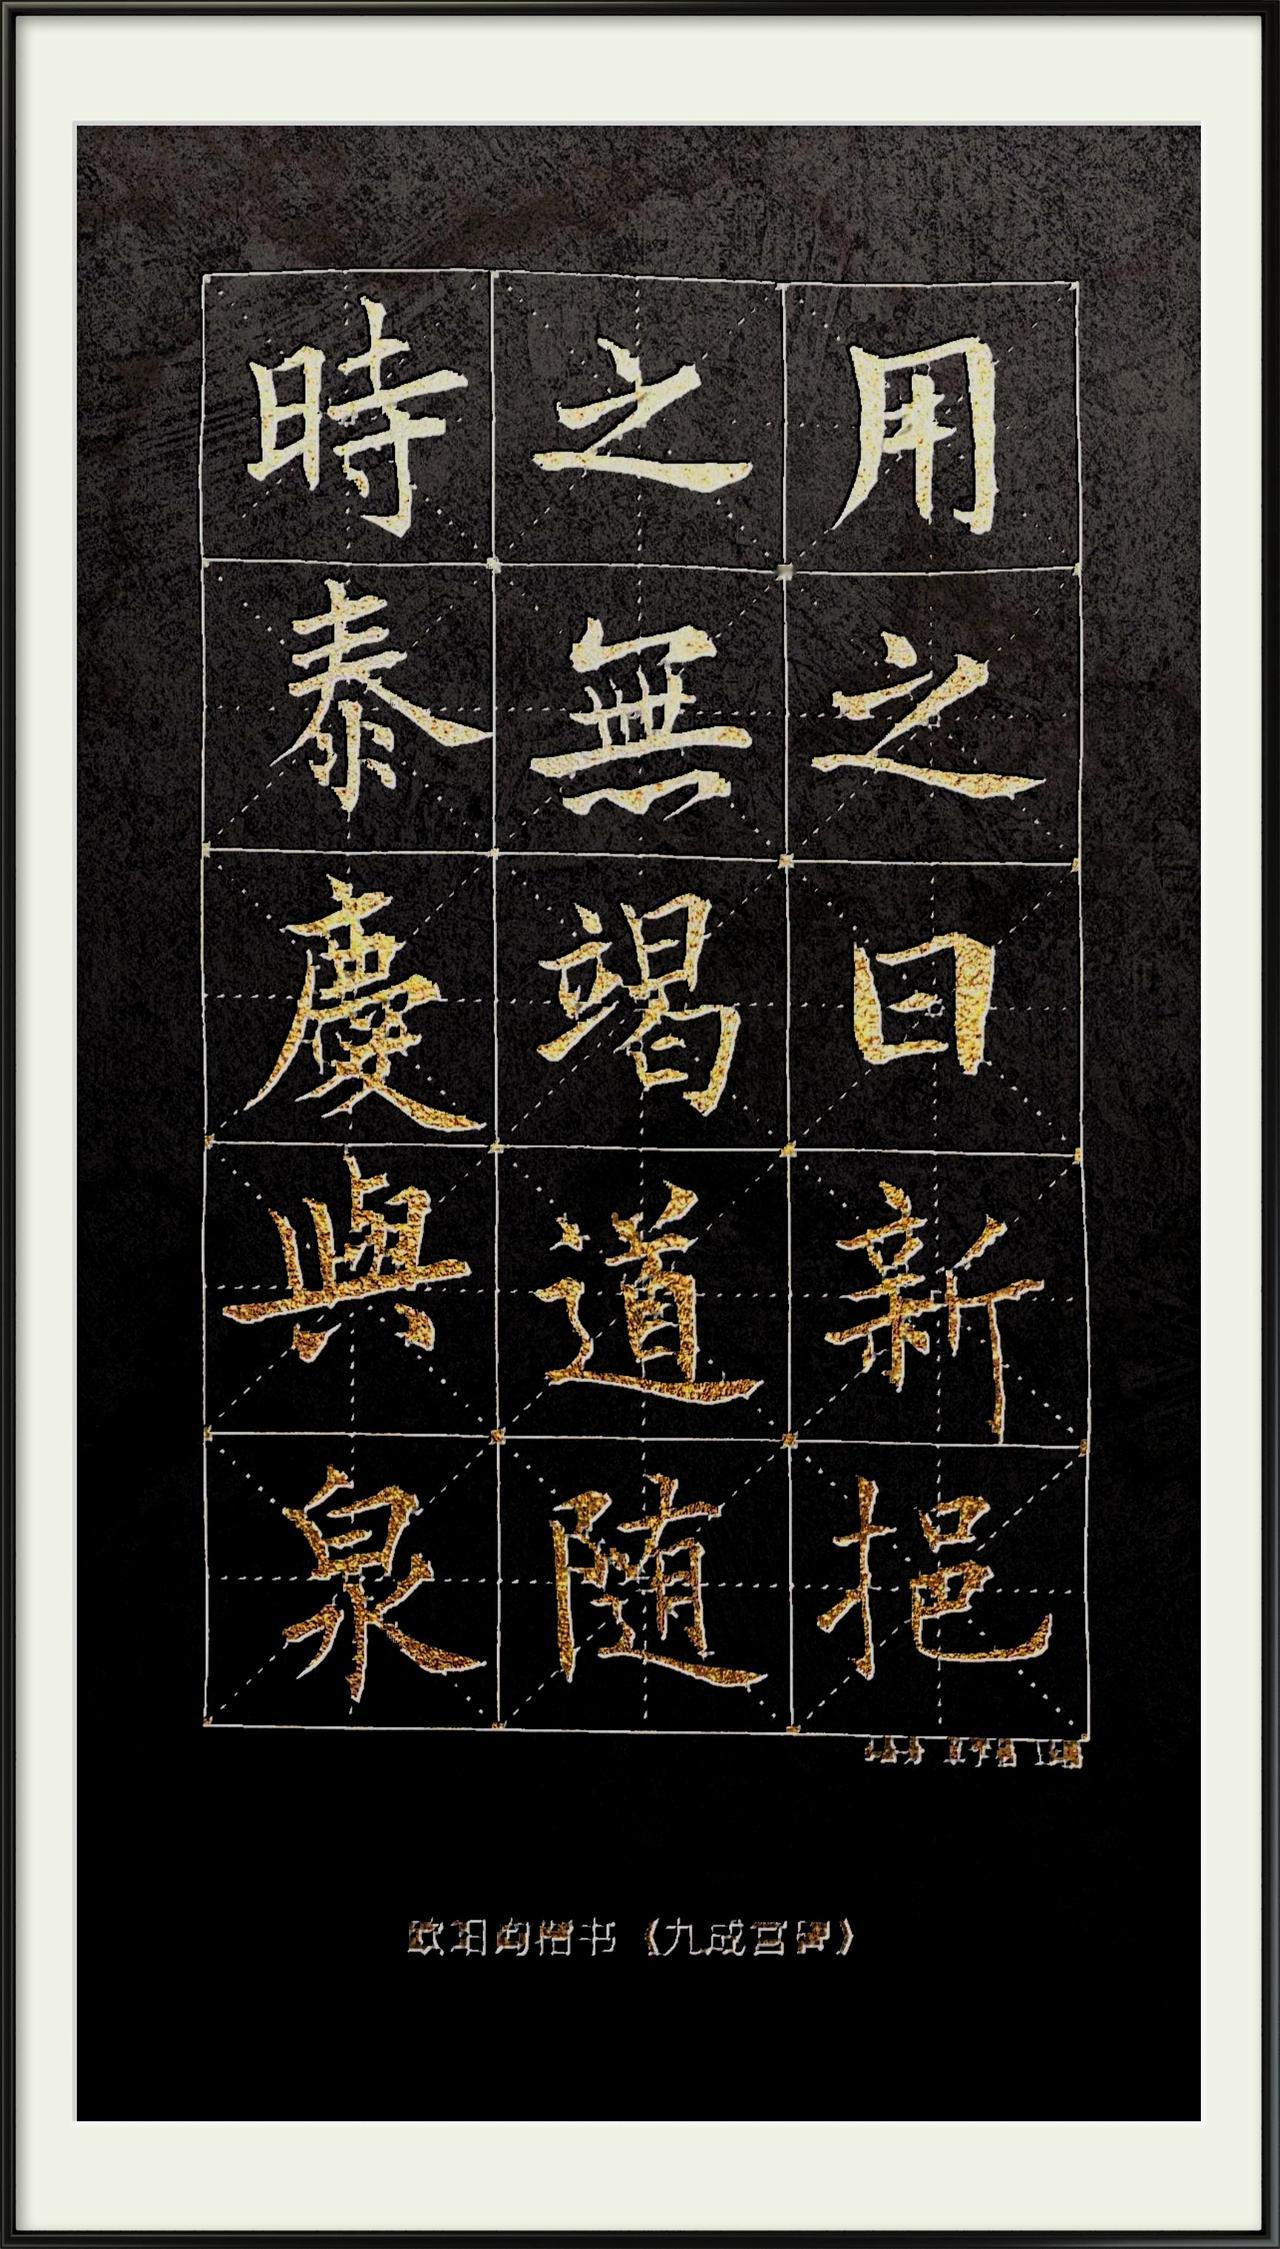 用之日新挹
之無竭道随
時泰慶與泉
欧阳询楷书《九成宫碑》